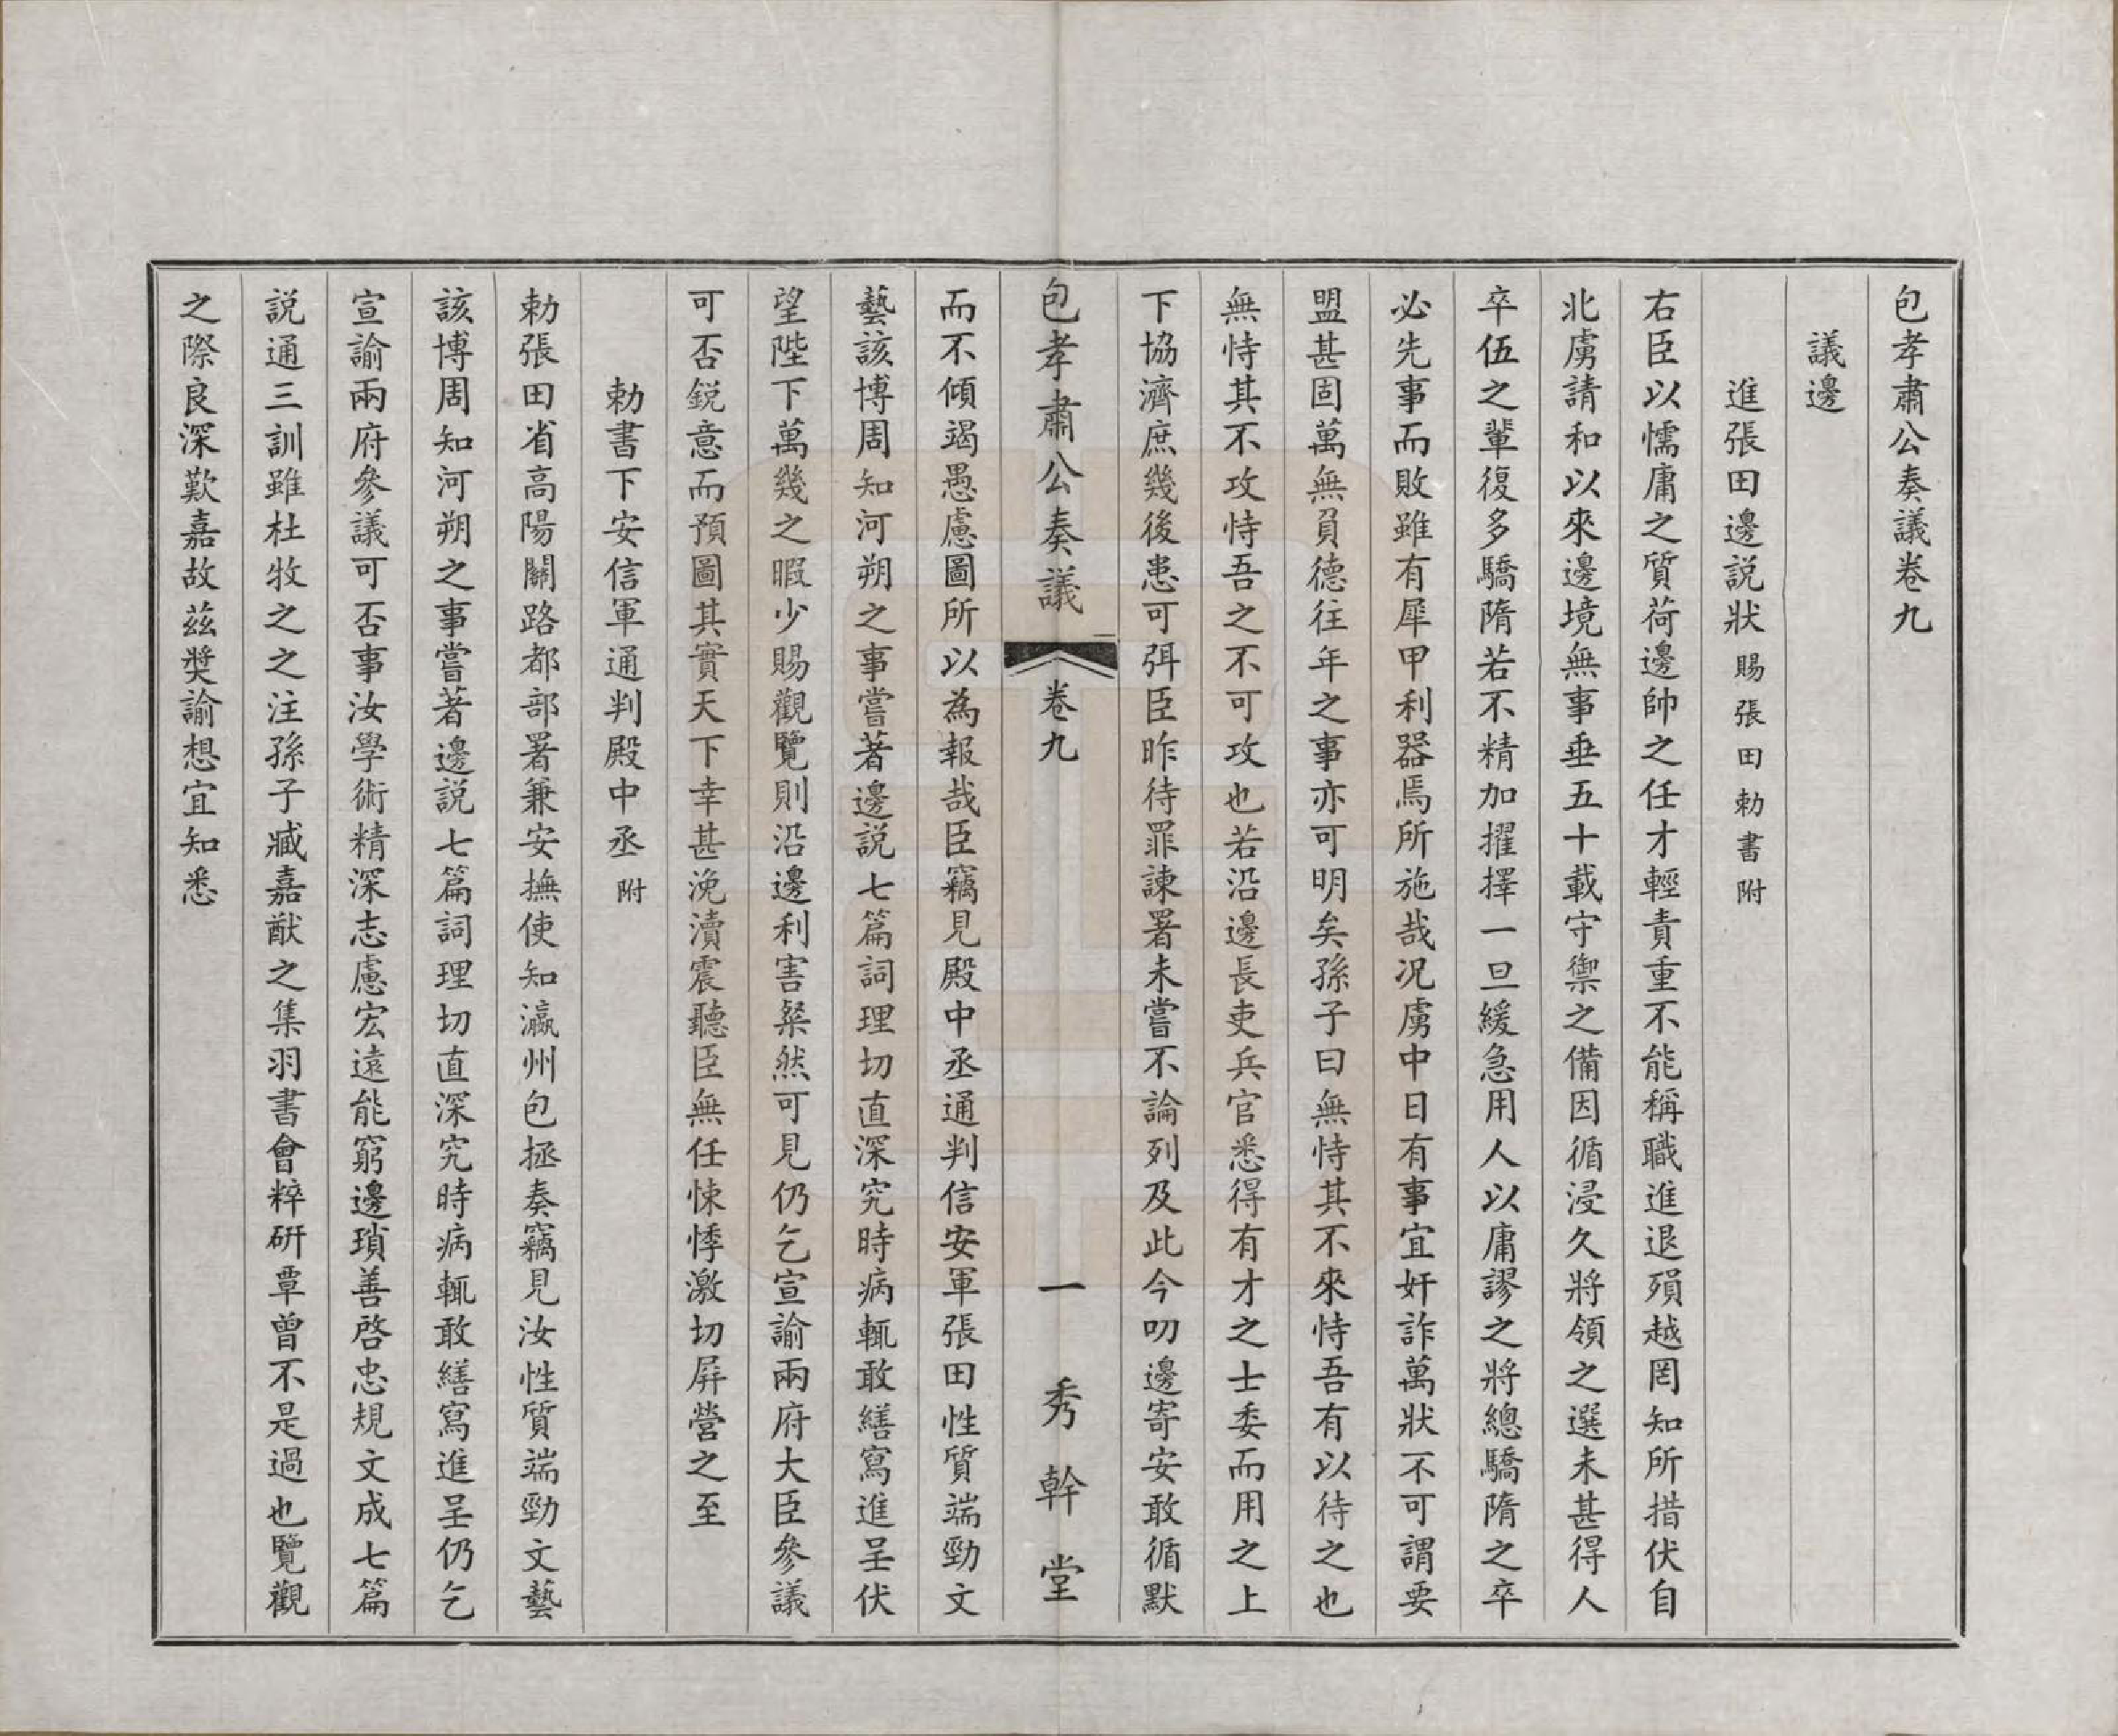 包孝肅公奏議卷九
議邊
進張田邊説狀賜張田勅書附
右臣以懦庸之質荷邊帥之任才輕責重不能稱職進退殞越罔知所措伏自
北虜請和以來邊境無事垂五十載守禦之備因循浸久將領之選未甚得人
卒伍之輩復多驕隋若不精加擢擇一旦緩急用人以庸謬之將總驕隋之卒
必先事而敗雖有犀甲利器焉所施哉况虜中日有事宜奸詐萬狀不可謂要
盟甚固萬無負德往年之事亦可明矣孫子曰無恃其不來恃吾有以待之也
無恃其不攻恃吾之不可攻也若沿邊長吏兵官悉得有才之士委而用之上
下協濟庶幾後患可弭臣昨待罪諫署未嘗不論列及此今叨邊寄安敢循默
包孝肅公奏議 卷九 一 秀幹堂
而不傾竭愚慮圖所以為報哉臣竊見殿中丞通判信安軍張田性質端勁文
藝該博周知河朔之事嘗著邊説七篇詞理切直深究時病輒敢繕寫進呈伏
望陛下萬幾之暇少賜觀覽則沿邊利害粲然可見仍乞宣諭兩府大臣參議
可否鋭意而預圖其實天下幸甚浼瀆震聽臣無任悚悸激切屏營之至
勅書下安信軍通判殿中丞附
勅張田省高陽關路都部署兼安撫使知瀛州包拯奏竊見汝性質端勁文藝
該博周知河朔之事嘗著邊説七篇詞理切直深究時病輒敢繕寫進呈仍乞
宣諭兩府參議可否事汝學術精深志慮宏遠能窮邊瑣善啓忠規文成七篇
説通三訓雖杜牧之之注孫子臧嘉猷之集羽書會粹研覃曾不是過也覽觀
之際良深歎嘉故茲奬諭想宜知悉